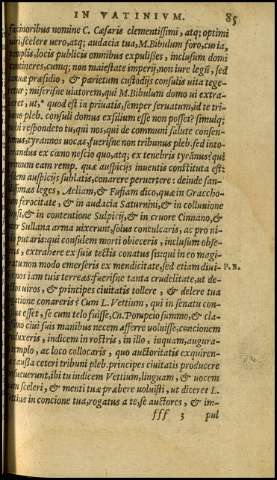 IN VATINIVM. 85
facinoribus nomine C. Cæsaris clementissimi, atq; optimi
uiri, scelere uero, atq; audacia tua, M. Bibulum foro, curia,
templis, locis publicis omnibus expulisses, inclusum domi
contineres, cumq; non maiestate imperij, non iure legũ, sed
ianuæ præsidio, & parietum custodijs consulis uita tege-
retur; miserisne uiatorem, qui M. Bibulum domo ui extra-
heret, ut, * quod est in priuatis semper seruatum, id te tri-
buno pleb. consuli domus exsilium esse non posset? simulq;
mihi respondeto tu, qui nos, qui de communi salute consen-
timus, tyrannos uocas, fuerisne non tribunus pleb. sed into-
lerandus ex cæno nescio quo, atq; ex tenebris tyrãnus? qui
primum eam remp. quæ auspicijs inuentis constituta est
isdem auspicijs sublatis, conarere peruertere: deinde san-
ctissimas leges, Aeliam, & Fusiam dico, quæ in Graccho-
rum ferocitate, & in audacia Saturnini, & in colluuione
Drusi, & in contentione Sulpicij, & in cruore Cinnano, &
inter Sullana arma uixerunt, solus conculcaris, ac pro ni-
hilo putaris: qui consulem morti obieceris, inclusum obse-
deris, extrahere ex suis tectis conatus sis: qui in eo magi-
stratu non modo emerseris ex mendicitate, sed etiam diui-
tijs nos iam tuis terreas: fuerisne tanta crudelitate, ut de- P. R.
lectos uiros, & principes ciuitatis tollere, & delere tua
rogatione conareris? Cum L. Vettium, qui in senatu con-
fessus esset, se cum telo fuisse, Cn. Pompeio summo, & cla-
rissimo ciui suis manibus necem afferre uoluisse, concionem
produxeris, indicem in rostris, in illo, inquam, augura-
to templo, ac loco collocaris, quo auctoritatis exquiren-
dæ causa ceteri tribuni pleb. principes ciuitatis producere
consueuerunt, ibi tu indicem Vettium, linguam, & uocem
suam sceleri, & menti tuæ præbere uoluisti, ut diceret L.
Vettius in concione tua, rogatus a te, se auctores, & im-
fff 3 pul